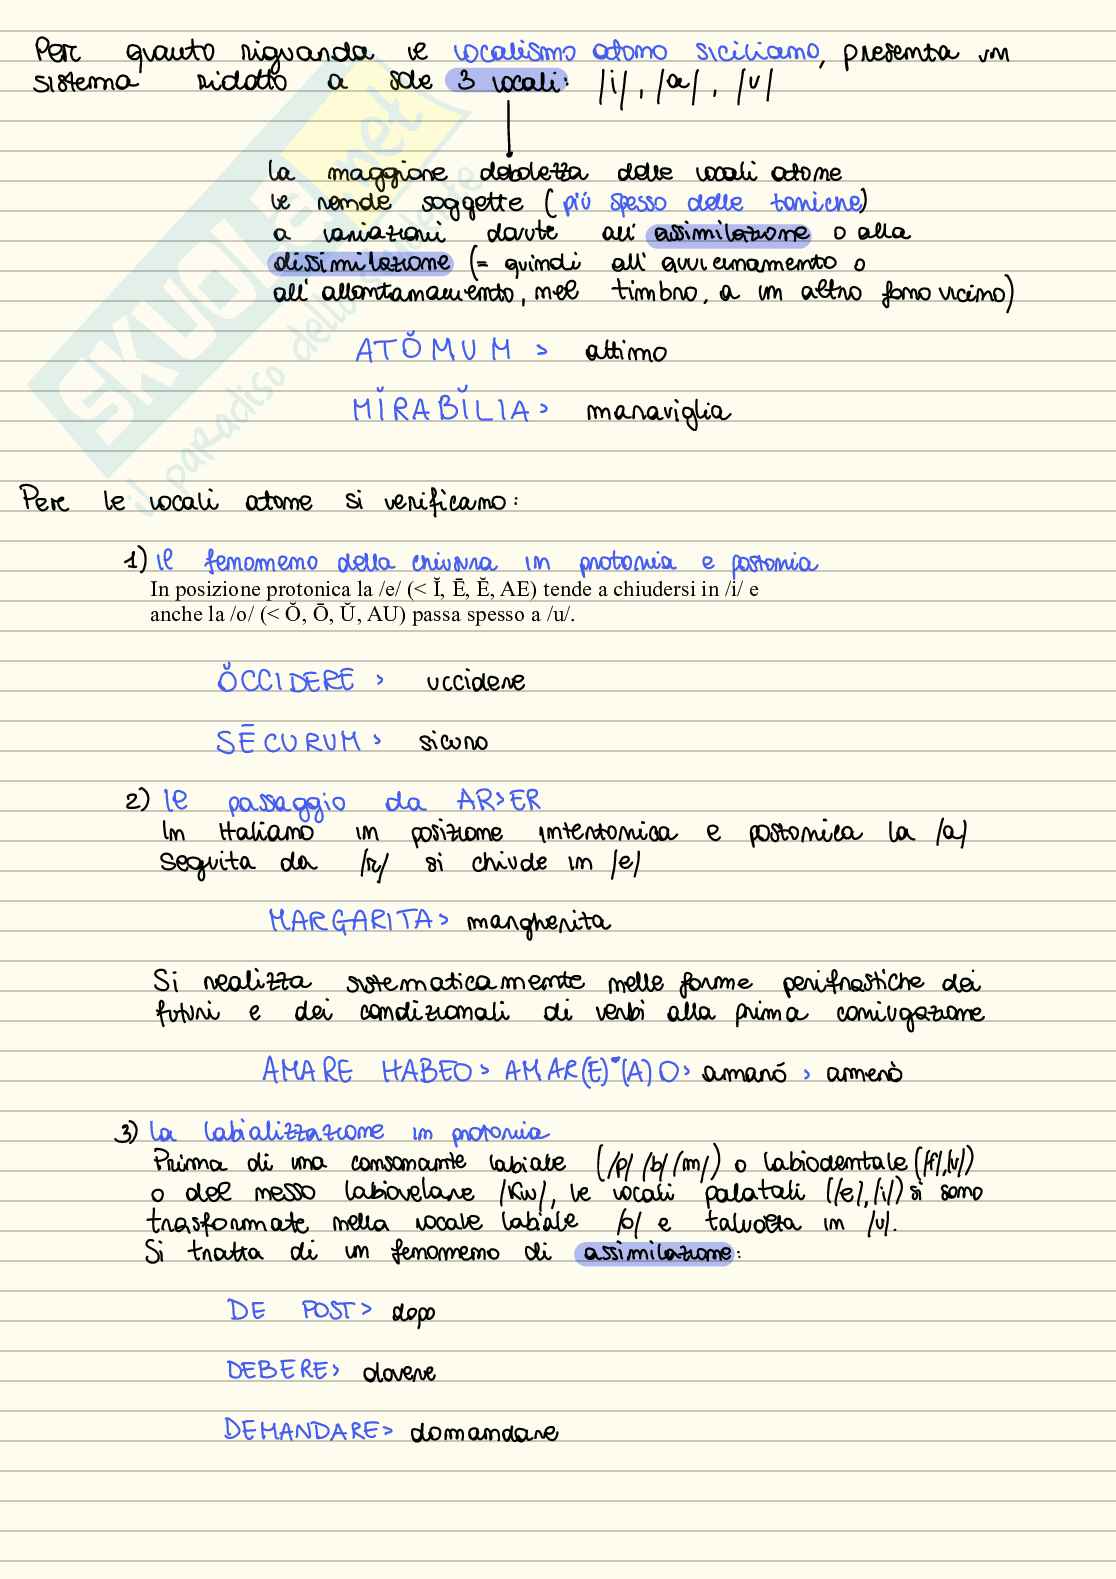 Per quanto riguarda il vocalismo atono siciliano, presenta un
sistema ridotto a sole 3 vocali: /i/, /a/, /u/
la maggiore debolezza delle vocali atone
le rende soggette (più spesso delle toniche)
a variazioni dovute all'assimilazione o alla
dissimilazione (= quindi all'avvicinamento o
all'allontanamento, nel timbro, a un altro fono vicino)
ATŎMUM > attimo
MĬRABĬLIA > maraviglia
Per le vocali atone si verificano:
1) Il fenomeno della chiusura in protonia e postonia
In posizione protonica la /e/ (< Ĭ, Ē, Ĕ, AE) tende a chiudersi in /i/ e
anche la /o/ (< Ŏ, Ō, Ŭ, AU) passa spesso a /u/.
ŎCCIDERE > uccidere
SĒCURUM > sicuro
2) Il passaggio da AR>ER
In Italiano in posizione intertonica e postonica la /a/
seguita da /r/ si chiude in /e/
MARGARITA > margherita
Si realizza sistematicamente nelle forme perifrastiche dei
futuri e dei condizionali di verbi alla prima coniugazione
AMARE HABEO > AMAR(E)*(A)O > amarò > amerò
3) La labializzazione in protonia
Prima di una consonante labiale (/p/ /b/ /m/) o labiodentale (/f/,/v/)
o del nesso labiovelare /kw/, le vocali palatali (/e/,/i/) si sono
trasformate nella vocale labiale /o/ e talvolta in /u/.
Si tratta di un fenomeno di assimilazione:
DE POST > dopo
DEBERE > dovere
DEMANDARE > domandare
SKUOLA.net
il paradiso dello studente